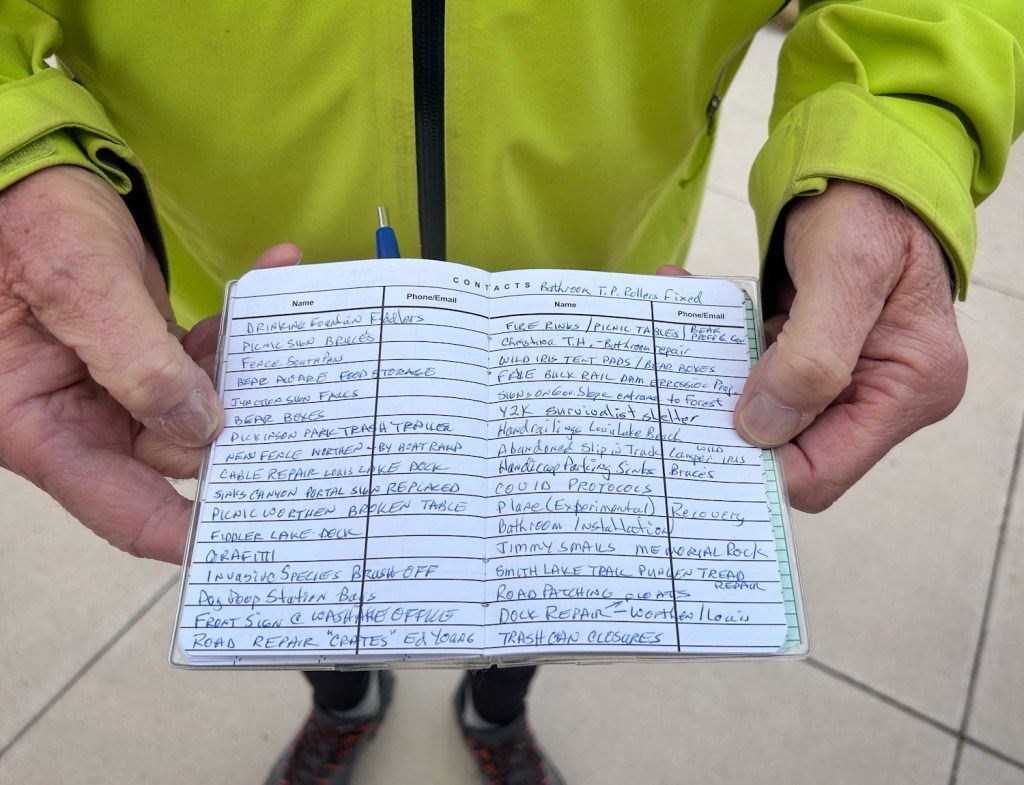 CONTACTS Bathroom T.P. Rollers Fixed
Name Phone/Email
DRINKING FOUNTAIN Fiddlers
PICNIC SIGN BRUCES
FENCE SOUTH PAW
BEAR AWARE FOOD STORAGE
JUNCTION SIGN FALLS
BEAR BOXES
DICKINSON PARK TRASH TRAILER
NEW FENCE WORTHEN - BY BOAT RAMP
CABLE REPAIR LOUIS LAKE DOCK
SINKS CANYON PORTAL SIGN REPLACED
PICNIC WORTHEN BROKEN TABLE
FIDDLER LAKE DOCK
GRAFITTI
INVASIVE SPECIES BRUSH OFF
Dog Poop Station Bags
FRONT SIGN @ WASHAKIE OFFICE
ROAD REPAIR "CRATES" Ed YOUNG
Name Phone/Email
FIRE RINKS / PICNIC TABLES / BEAR PROFF
Christina T.H. - Bathroom repair
WILD IRIS TENT PADS / BEAR BOXES
BUCK RAIL DAM ERROSSION
SIGNS ON 600 Slope entrance to Forest
Y2K survivalist shelter
Handrailings Louis Lake Beach
Abandoned Slip in Truck camper WILD IRIS
Handicap Parking Sinks Braces
COVID PROTOCOLS
Plane (Experimental) Recovery
Bathroom Installation
JIMMY SMAILS MEMORIAL ROCK
SMITH LAKE TRAIL PUNCEN TREAD REPAIR
ROAD PATCHING
FLOATS
DOCK REPAIR - WORTHEN / Louis
TRASH CAN CLOSURES